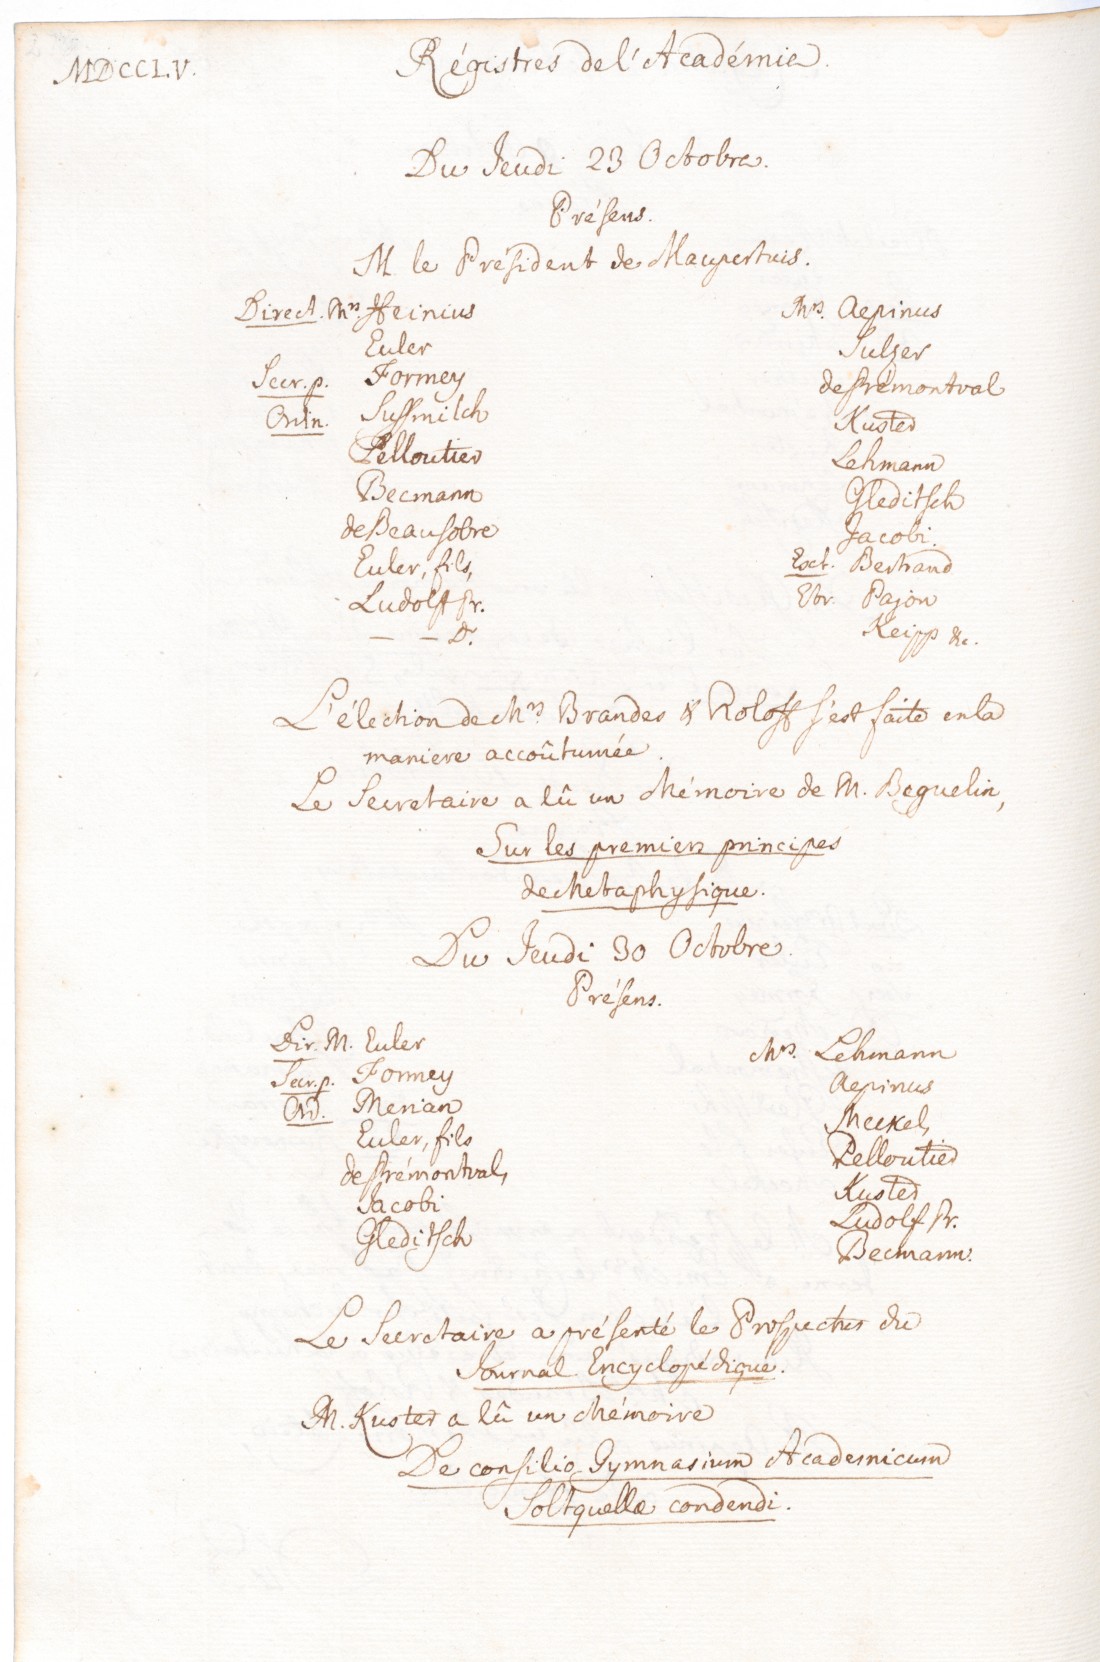 MDCCLV.
Régistres de l'Académie.
Du Jeudi 23 Octobre.
Présens.
M. le Président de Maupertuis.
Direct. Mrs. Heinius
Euler
Secr. p. Formey
Ordin. Sussmilch
Pelloutier
Becmann
de Beausobre
Euler, fils,
Ludolff Pr.
— — D.
Mrs. Aepinus
Sulzer
de Prémontval
Kuster
Lehmann
Gleditsch
Jacobi.
Ext. Bertrand
Etr. Pajon
Keipp &c.
L'élection de Mrs. Brandes & Roloff s'est faite en la
maniere accoûtumée.
Le Secretaire a lû un Mémoire de M. Beguelin,
Sur les premiers principes
de Metaphysique.
Du Jeudi 30 Octobre.
Présens.
Dir. M. Euler
Secr. p. Formey
Ord. Merian
Euler, fils
de Prémontval,
Jacobi
Gleditsch
Mrs. Lehmann
Aepinus
Meckel,
Pelloutier
Kuster
Ludolf Pr.
Becmann.
Le Secretaire a présenté le Prospectus du
Journal Encyclopédique.
M. Kuster a lû un Mémoire
De consilio Gymnasium Academicum
Soltquellæ condendi.